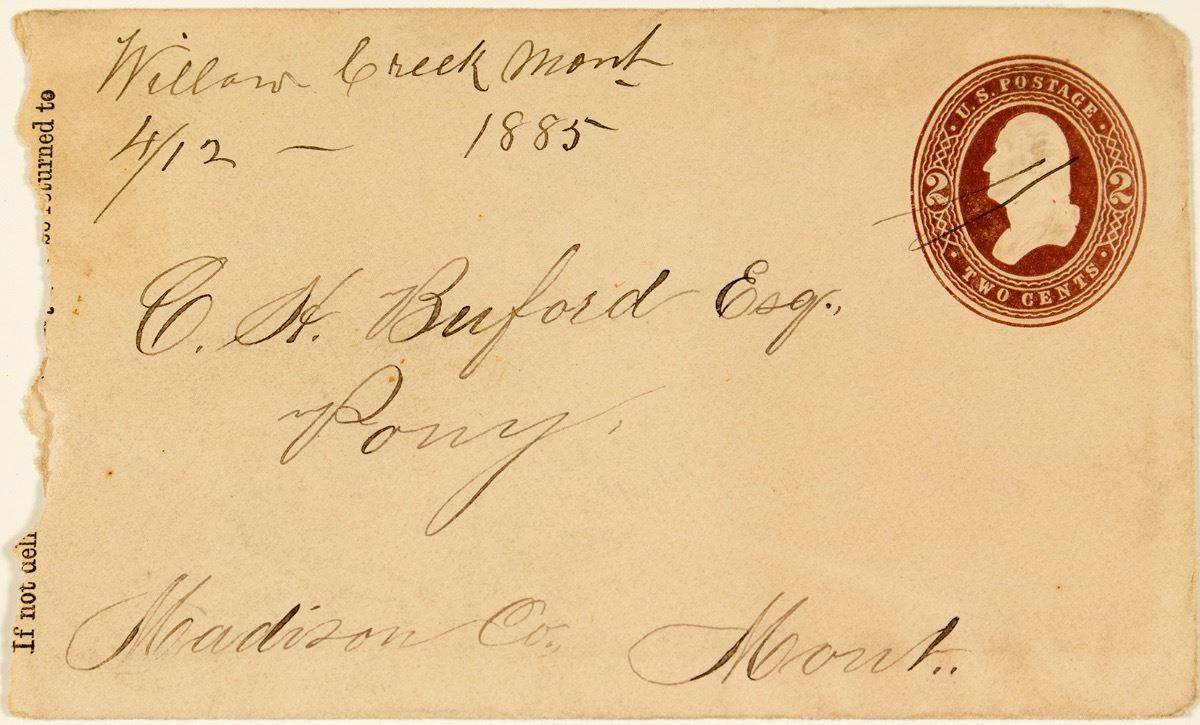 Willow Creek Mont
4/12 — 1885
U.S. POSTAGE
2 2
TWO CENTS
C. H. Buford Esq.,
Pony,
Madison Co., Mont.
If not deli
be returned to